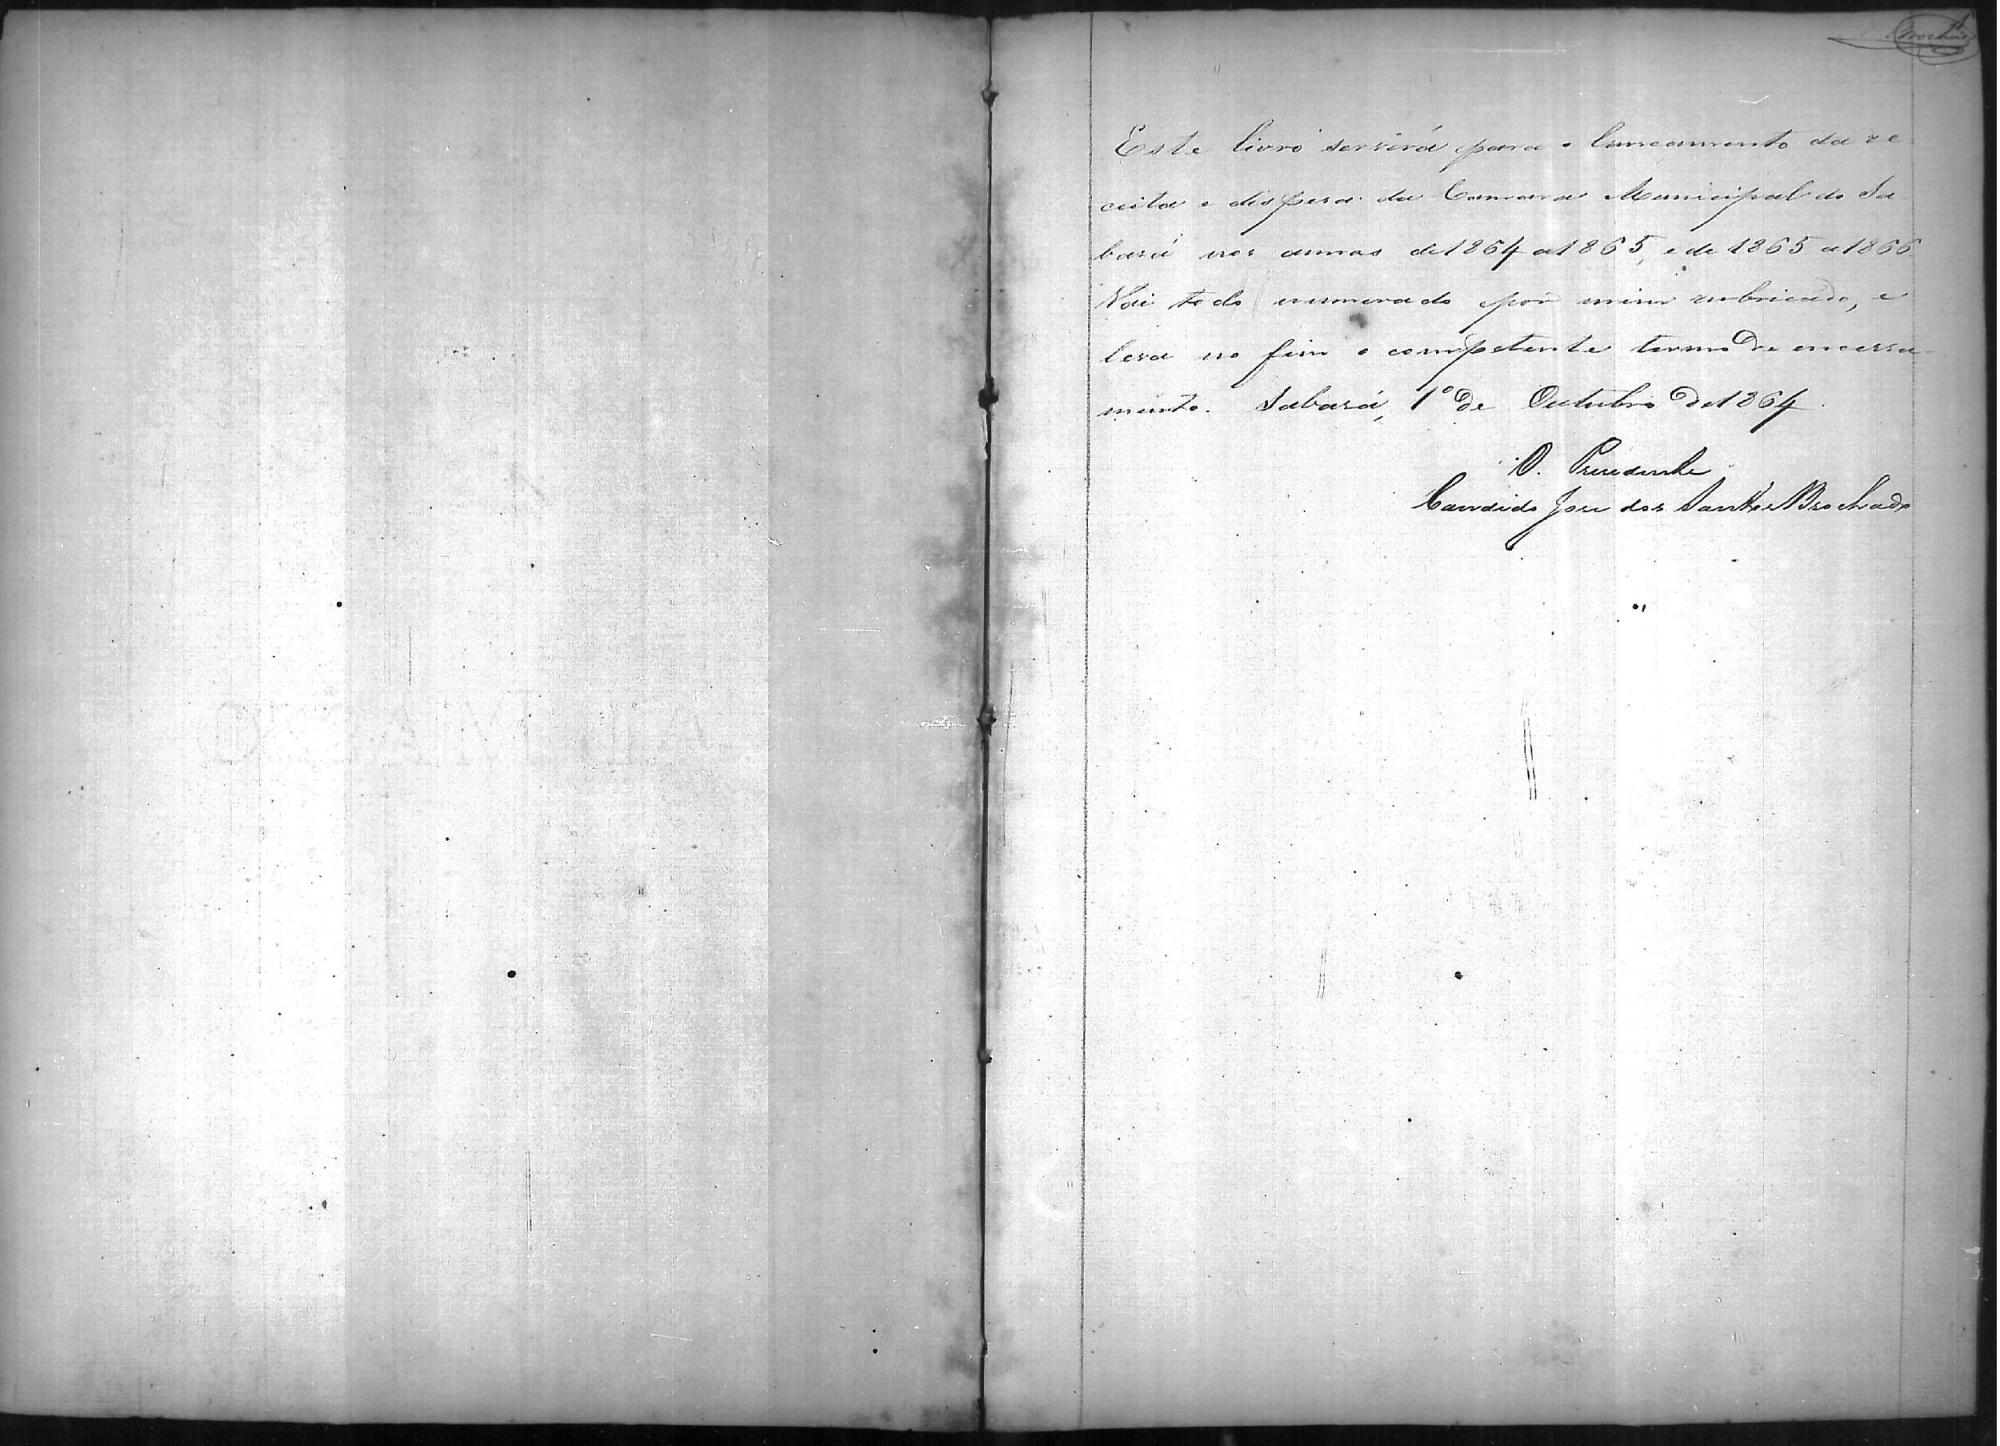 Brochado
Este livro servirá para o lancamento da re-
ceita e dispesa da Camara Municipal do Sa
bará nos annos de 1864 a 1865, e de 1865 a 1866
Vai todo numerado por mim rubricado, e
leva no fim o competente termo de encerra-
mento. Sabará, 1º de Outubro de 1864.
O. Presidente
Candido Jose dos Santos Brochado